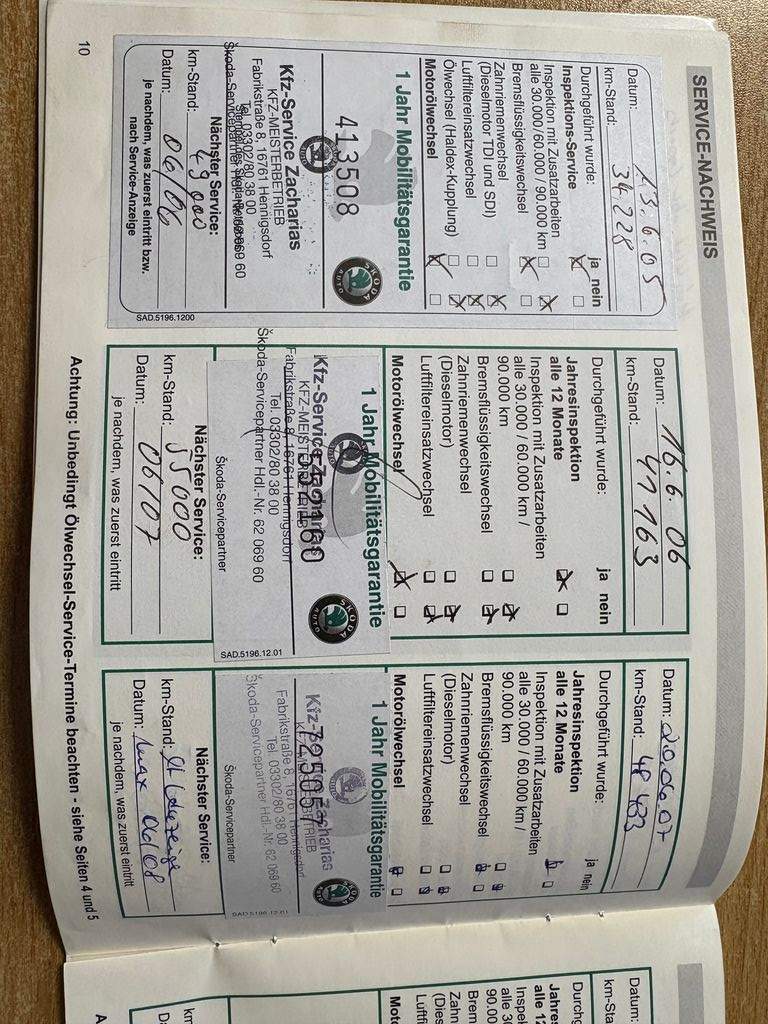 SERVICE-NACHWEIS
Datum: 13.6.05
km-Stand: 34.228
Durchgeführt wurde: ja nein
Inspektions-Service
Inspektion mit Zusatzarbeiten
alle 30.000/60.000/90.000 km
Bremsflüssigkeitswechsel
Zahnriemenwechsel
(Dieselmotor TDI und SDI)
Luftfiltereinsatzwechsel
Ölwechsel (Haldex-Kupplung)
Motorölwechsel
1 Jahr Mobilitätsgarantie
SKODA
AUTO
413508
Kfz-Service Zacharias
KFZ-MEISTERBETRIEB
Fabrikstraße 8, 16761 Hennigsdorf
Tel. 03302/80 38 00
Škoda-Servicepartner Hdl.-Nr. 62 069 60
Nächster Service:
km-Stand: 49000
Datum: 06/06
je nachdem, was zuerst eintritt bzw.
nach Service-Anzeige
SAD.5196.1200
Datum: 16.6.06
km-Stand: 41163
Durchgeführt wurde: ja nein
Jahresinspektion
alle 12 Monate
Inspektion mit Zusatzarbeiten
alle 30.000 / 60.000 km /
90.000 km
Bremsflüssigkeitswechsel
Zahnriemenwechsel
(Dieselmotor)
Luftfiltereinsatzwechsel
Motorölwechsel
1 Jahr Mobilitätsgarantie
SKODA
AUTO
Kfz-Service Zacharias
KFZ-MEISTERBETRIEB
Fabrikstraße 8, 16761 Hennigsdorf
Tel. 03302/80 38 00
Škoda-Servicepartner Hdl.-Nr. 62 069 60
Škoda-Servicepartner
SAD.5196.12.01
Nächster Service:
km-Stand: 55000
Datum: 06/07
je nachdem, was zuerst eintritt
Datum: 20.06.07
km-Stand: 48433
Durchgeführt wurde: ja nein
Jahresinspektion
alle 12 Monate
Inspektion mit Zusatzarbeiten
alle 30.000 / 60.000 km /
90.000 km
Bremsflüssigkeitswechsel
Zahnriemenwechsel
(Dieselmotor)
Luftfiltereinsatzwechsel
Motorölwechsel
1 Jahr Mobilitätsgarantie
Kfz-Service Zacharias
KFZ-MEISTERBETRIEB
Fabrikstraße 8, 16761 Hennigsdorf
Tel. 03302/80 38 00
Škoda-Servicepartner Hdl.-Nr. 62 069 60
Škoda-Servicepartner
SAD.5196.12.01
Nächster Service:
km-Stand: lt Anzeige
Datum: max 06/08
je nachdem, was zuerst eintritt
Achtung: Unbedingt Ölwechsel-Service-Termine beachten - siehe Seiten 4 und 5
10
Datum:
km-Stand:
Durchg
Jahres
alle 12
Inspek
alle 30
90.00
Brem
Zahn
(Dies
Luft
Mot
km
D
A